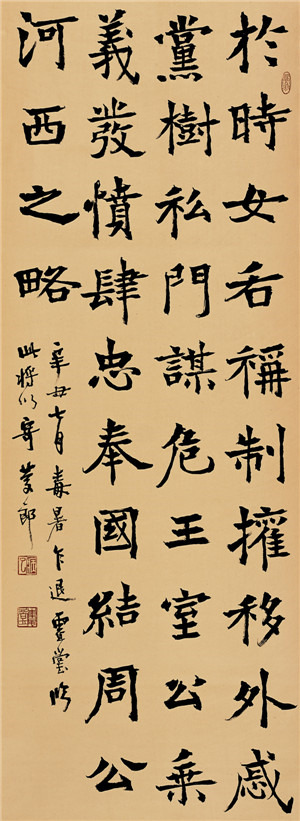 於時女后稱制擁移外戚
黨樹私門謀危王室公乘
義發憤肆忠奉國結周公
河西之略
辛丑七月毒暑乍退堂臨
此將以寄郎